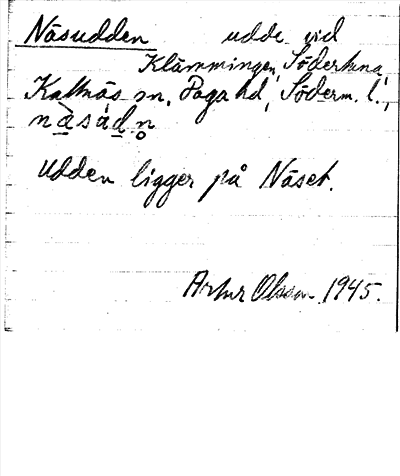 Näsudden udde vid
Klämmingen, Södertuna,
Kattnäs sn, Daga hd, Söderm. l.,
Udden ligger på Näset.
Artur Olsson 1945.